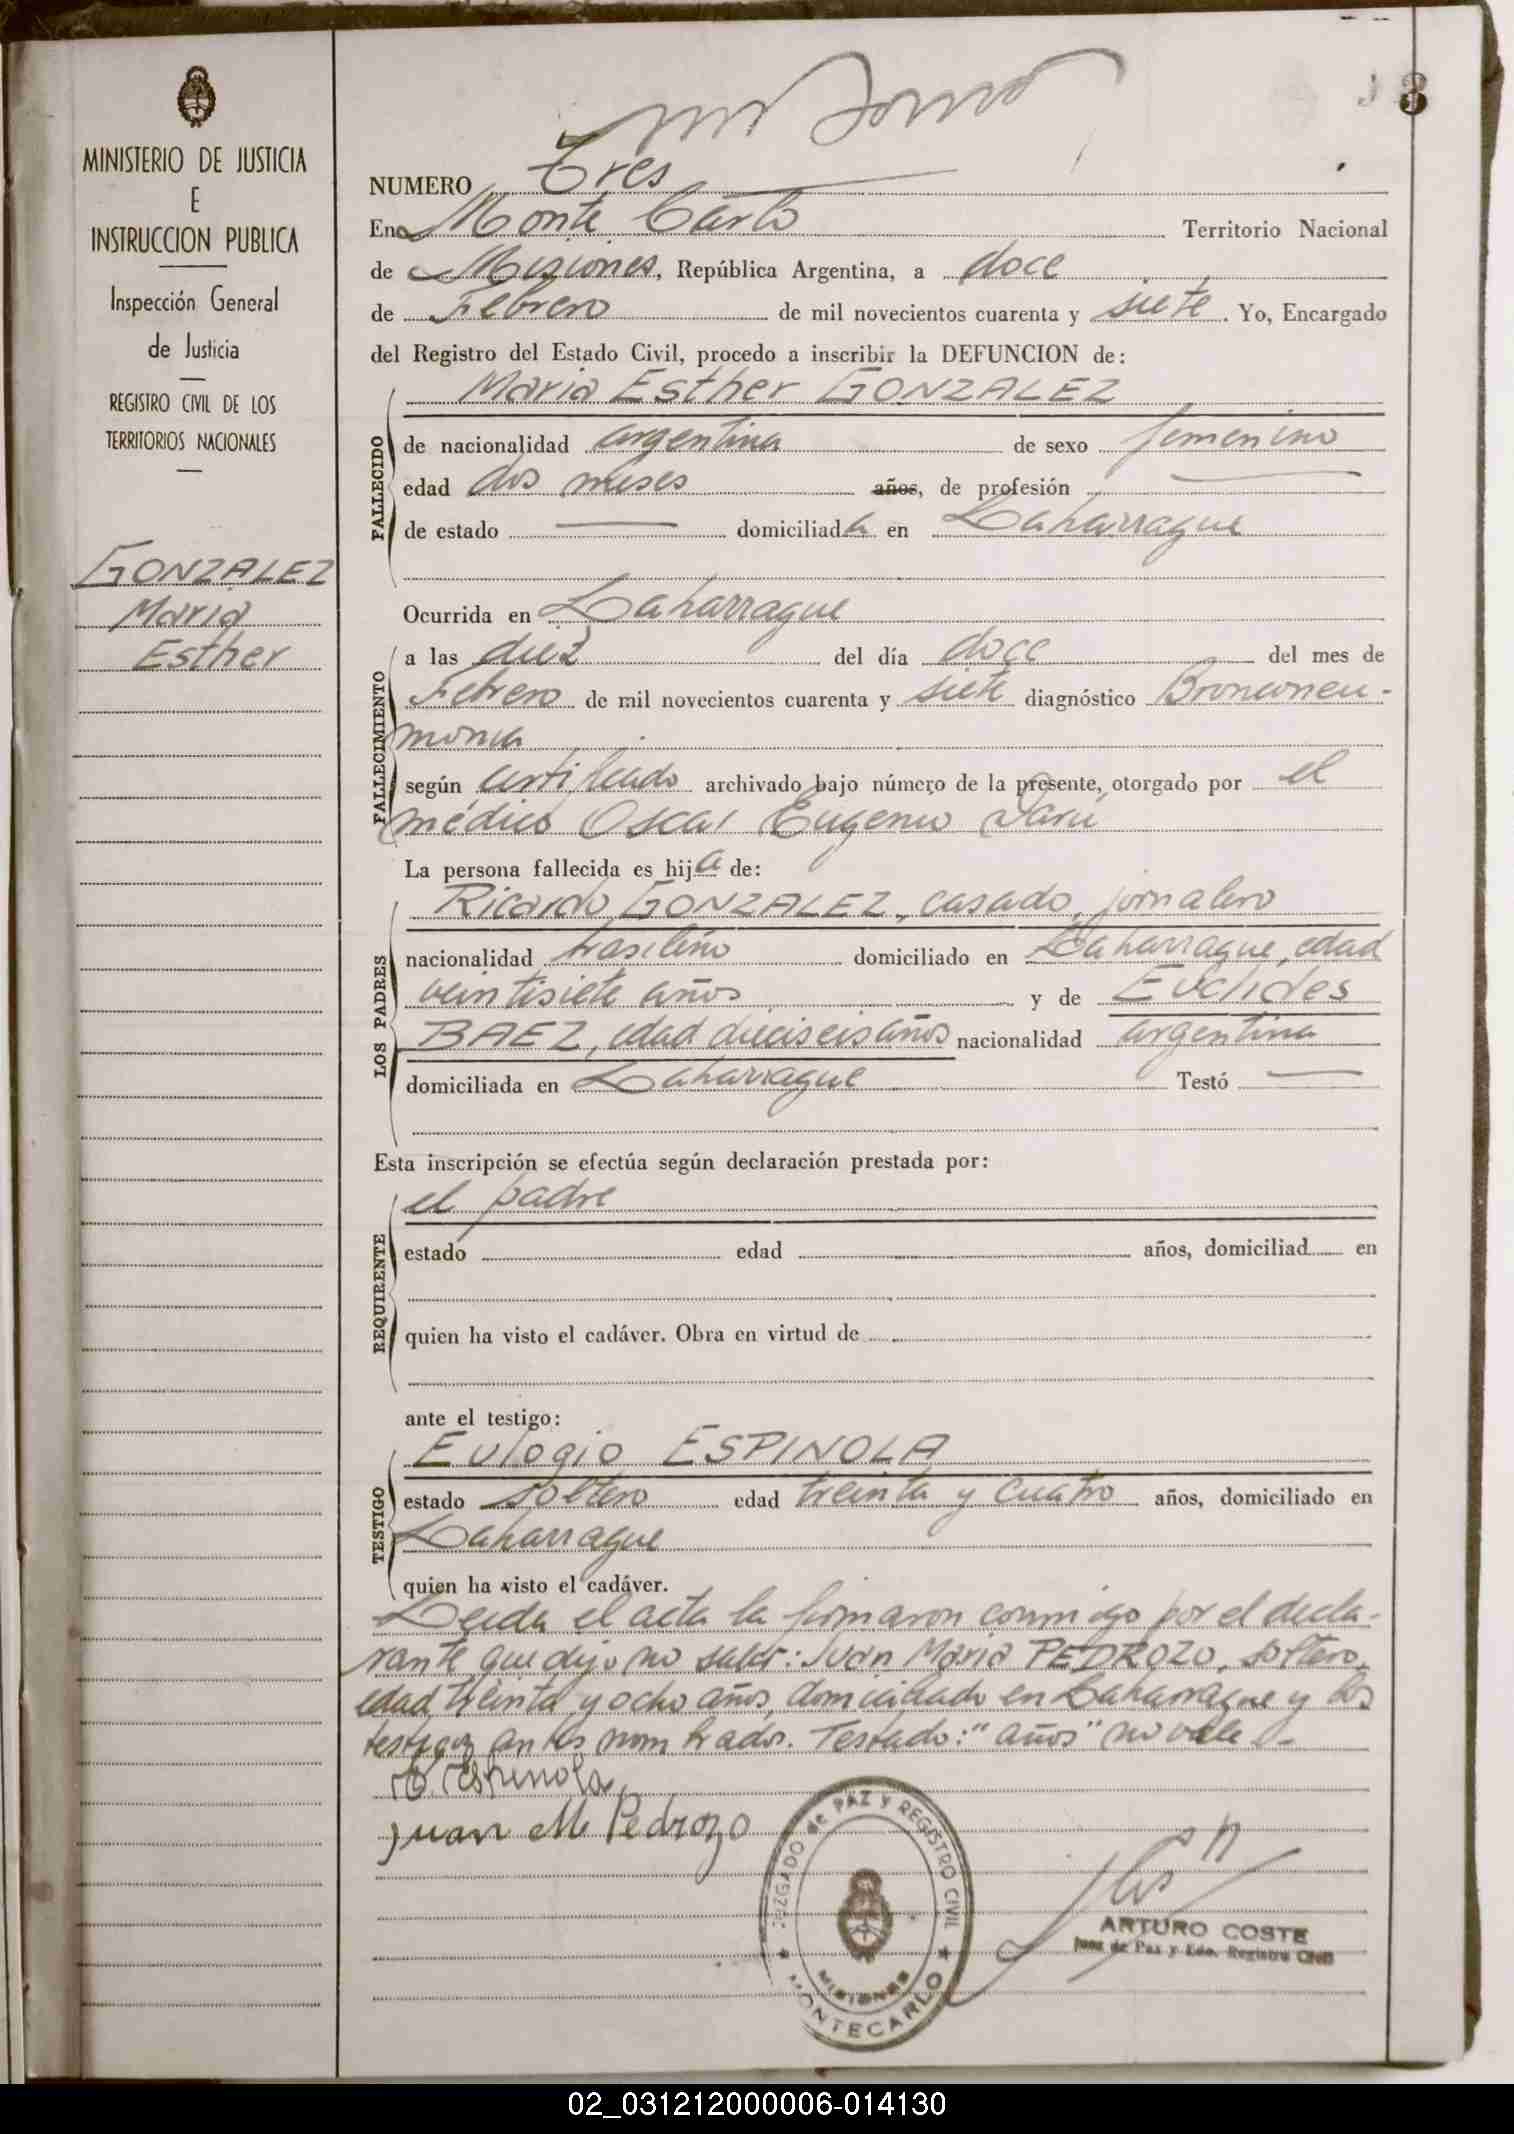 3
MINISTERIO DE JUSTICIA
E
INSTRUCCION PUBLICA
Inspección General
de Justicia
REGISTRO CIVIL DE LOS
TERRITORIOS NACIONALES
GONZALEZ
Maria
Esther
NUMERO Tres
En Monte Carlo Territorio Nacional
de Misiones, República Argentina, a doce
de Febrero de mil novecientos cuarenta y siete. Yo, Encargado
del Registro del Estado Civil, procedo a inscribir la DEFUNCION de:
Maria Esther GONZALEZ
FALLECIDO
de nacionalidad argentina de sexo femenino
edad dos meses años, de profesión
de estado domiciliada en Laharrague
Ocurrida en Laharrague
FALLECIMIENTO
a las diez del día doce del mes de
Febrero de mil novecientos cuarenta y siete diagnóstico Bronconeu-
monia
según certificado archivado bajo número de la presente, otorgado por el
médico Oscar Eugenio
La persona fallecida es hija de:
LOS PADRES
Ricardo GONZALEZ, casado, jornalero
nacionalidad brasileño domiciliado en Laharrague, edad
veintisiete años y de Euclides
BAEZ, edad dieciseis años nacionalidad argentina
domiciliada en Laharrague Testó
Esta inscripción se efectúa según declaración prestada por:
REQUIRENTE
el padre
estado edad años, domiciliad en
quien ha visto el cadáver. Obra en virtud de
ante el testigo:
TESTIGO
Eulogio ESPINOLA
estado soltero edad treinta y cuatro años, domiciliado en
Laharrague
quien ha visto el cadáver.
Leida el acta la firmaron conmigo por el decla-
rante que dijo no saber: Juan Maria PEDROZO, soltero,
edad treinta y ocho años, domiciliado en Laharrague y los
testigos antes nombrados. Testado: "años" no vale
E. Espinola
Juan M Pedrozo
JUZGADO de PAZ Y REGISTRO CIVIL
MISIONES
MONTECARLO
ARTURO COSTE
Juez de Paz y Edo. Registro Civil
02_031212000006-014130